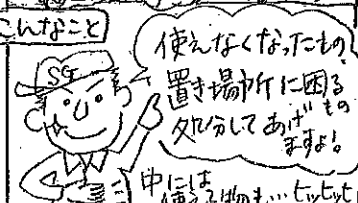 こんなこと
SG
使えなくなったもの、
置き場所に困るもの
処分してあげますよ!
中には
使える物も…ヒッヒッヒ